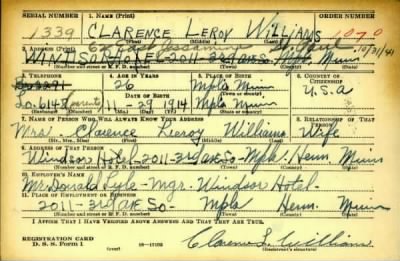 SERIAL NUMBER 1. NAME (Print) ORDER NUMBER
1339 CLARENCE LEROY WILLIAMS 1070
10/31/41
2. ADDRESS (Print)
WINDSOR HOTEL-2011-3rd AVE SO Mpls Minn
3. TELEPHONE 4. AGE IN YEARS 5. PLACE OF BIRTH 6. COUNTRY OF CITIZENSHIP
26 Mpls Minn
11-29 1914 Mpls Minn U.S.A
7. NAME OF PERSON WHO WILL ALWAYS KNOW YOUR ADDRESS 8. RELATIONSHIP OF THAT PERSON
Mrs. Clarence Leeroy Williams Wife
(Mr., Mrs., Miss) (First) (Middle) (Last)
9. ADDRESS OF THAT PERSON
Windsor Hotel-2011-3rd AVE So-Mpls. Henn. Minn
(Number and street or R. F. D. number) (Town) (County) (State)
10. EMPLOYER'S NAME
Mr Donald Lyle-Mgr. Windsor Hotel-
11. PLACE OF EMPLOYMENT OR BUSINESS
2011-3rd AVE So- Mpls Henn. Minn
(Number and street or R. F. D. number) (Town) (County) (State)
I AFFIRM THAT I HAVE VERIFIED ABOVE ANSWERS AND THAT THEY ARE TRUE.
REGISTRATION CARD
D. S. S. Form 1 16-17105 Clarence L. Williams
(Registrant's signature)